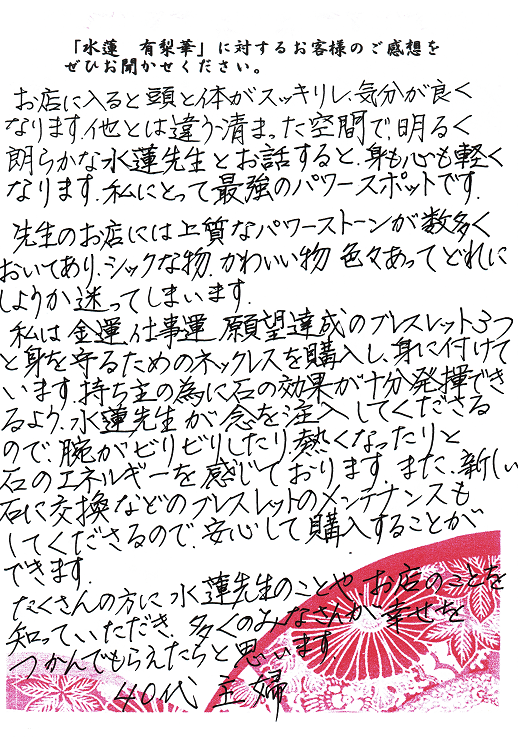 「水蓮　有梨華」に対するお客様のご感想を
ぜひお聞かせください。
お店に入ると頭と体がスッキリし、気分が良く
なります。他とは違う清まった空間で、明るく
朗らかな水蓮先生とお話すると、身も心も軽く
なります。私にとって最強のパワースポットです。
先生のお店には上質なパワーストーンが数多く
おいてあり、シックな物、かわいい物 色々あってどれに
しようか迷ってしまいます。
私は金運 仕事運 願望達成のブレスレット3つ
と身を守るためのネックレスを購入し、身に付けて
います。持ち主の為に石の効果が十分発揮でき
るよう、水蓮先生が念を注入してくださる
ので、腕がビリビリしたり、熱くなったりと
石のエネルギーを感じております。また、新しい
石に交換などのブレスレットのメンテナンスも
してくださるので、安心して購入することが
できます。
たくさんの方に水蓮先生のことや お店のことを
知っていただき、多くのみなさんが幸せを
つかんでもらえたらと思います。
40代 主婦